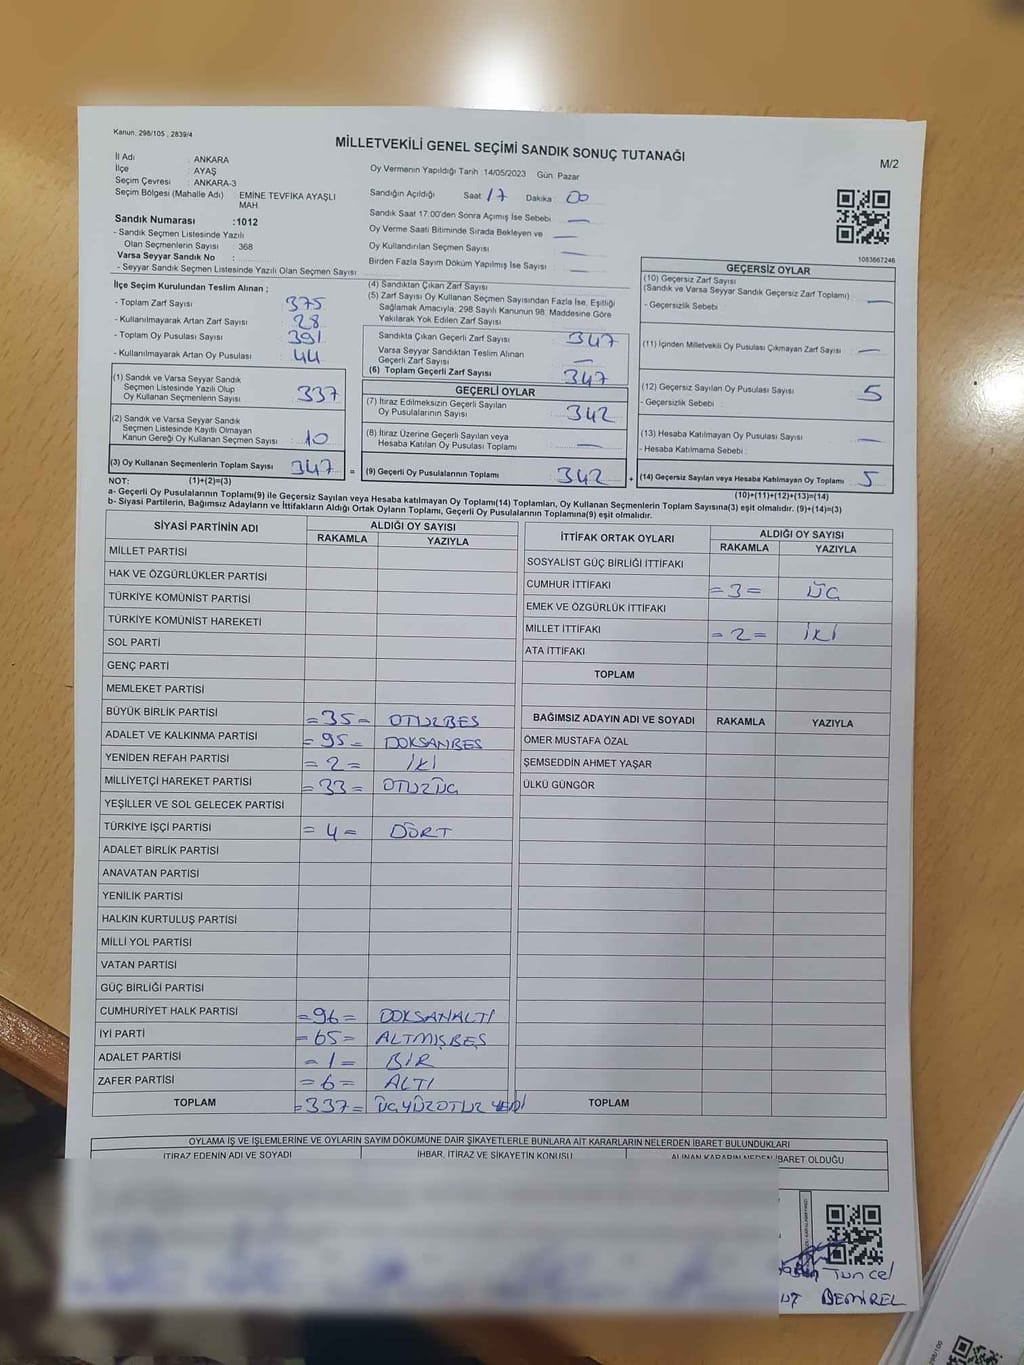 Kanun, 298/105 , 2839/4
MİLLETVEKİLİ GENEL SEÇİMİ SANDIK SONUÇ TUTANAĞI
M/2
İl Adı : ANKARA
İlçe : AYAŞ
Seçim Çevresi : ANKARA-3
Seçim Bölgesi (Mahalle Adı) : EMİNE TEVFİKA AYAŞLI
MAH.
Sandık Numarası :1012
- Sandık Seçmen Listesinde Yazılı
Olan Seçmenlerin Sayısı : 368
Varsa Seyyar Sandık No :
- Seyyar Sandık Seçmen Listesinde Yazılı Olan Seçmen Sayısı
Oy Vermenin Yapıldığı Tarih :14/05/2023 Gün: Pazar
Sandığın Açıldığı Saat 17 Dakika 00
Sandık Saat 17.00'den Sonra Açımış İse Sebebi —
Oy Verme Saati Bitiminde Sırada Bekleyen ve —
Oy Kullandırılan Seçmen Sayısı —
Birden Fazla Sayım Döküm Yapılmış İse Sayısı —
1083667246
İlçe Seçim Kurulundan Teslim Alınan ;
- Toplam Zarf Sayısı 375
- Kullanılmayarak Artan Zarf Sayısı 28
- Toplam Oy Pusulası Sayısı 391
- Kullanılmayarak Artan Oy Pusulası 44
(1) Sandık ve Varsa Seyyar Sandık
Seçmen Listesinde Yazılı Olup
Oy Kullanan Seçmenlerin Sayısı 337
(2) Sandık ve Varsa Seyyar Sandık
Seçmen Listesinde Kayıtlı Olmayan
Kanun Gereği Oy Kullanan Seçmen Sayısı 10
(3) Oy Kullanan Seçmenlerin Toplam Sayısı 347 =
(4) Sandıktan Çıkan Zarf Sayısı
(5) Zarf Sayısı Oy Kullanan Seçmen Sayısından Fazla İse, Eşitliği
Sağlamak Amacıyla; 298 Sayılı Kanunun 98. Maddesine Göre
Yakılarak Yok Edilen Zarf Sayısı
Sandıkta Çıkan Geçerli Zarf Sayısı 347
Varsa Seyyar Sandıktan Teslim Alınan
Geçerli Zarf Sayısı —
(6) Toplam Geçerli Zarf Sayısı 347
GEÇERLİ OYLAR
(7) İtiraz Edilmeksizin Geçerli Sayılan
Oy Pusulalarının Sayısı 342
(8) İtiraz Üzerine Geçerli Sayılan veya
Hesaba Katılan Oy Pusulası Toplamı —
(9) Geçerli Oy Pusulalarının Toplamı 342 +
GEÇERSİZ OYLAR
(10) Geçersiz Zarf Sayısı
(Sandık ve Varsa Seyyar Sandık Geçersiz Zarf Toplamı) —
- Geçersizlik Sebebi
(11) İçinden Milletvekili Oy Pusulası Çıkmayan Zarf Sayısı —
(12) Geçersiz Sayılan Oy Pusulası Sayısı 5
- Geçersizlik Sebebi :
(13) Hesaba Katılmayan Oy Pusulası Sayısı —
- Hesaba Katılmama Sebebi :
(14) Geçersiz Sayılan veya Hesaba Katılmayan Oy Toplamı 5
NOT: (1)+(2)=(3)
(10)+(11)+(12)+(13)=(14)
a- Geçerli Oy Pusulalarının Toplamı(9) ile Geçersiz Sayılan veya Hesaba katılmayan Oy Toplamı(14) Toplamları, Oy Kullanan Seçmenlerin Toplam Sayısına(3) eşit olmalıdır. (9)+(14)=(3)
b- Siyasi Partilerin, Bağımsız Adayların ve İttifakların Aldığı Ortak Oyların Toplamı, Geçerli Oy Pusulalarının Toplamına(9) eşit olmalıdır.
SİYASİ PARTİNİN ADI ALDIĞI OY SAYISI
RAKAMLA YAZIYLA
MİLLET PARTİSİ
HAK VE ÖZGÜRLÜKLER PARTİSİ
TÜRKİYE KOMÜNİST PARTİSİ
TÜRKİYE KOMÜNİST HAREKETİ
SOL PARTİ
GENÇ PARTİ
MEMLEKET PARTİSİ
BÜYÜK BİRLİK PARTİSİ =35= OTUZBEŞ
ADALET VE KALKINMA PARTİSİ =95= DOKSANBEŞ
YENİDEN REFAH PARTİSİ =2= İKİ
MİLLİYETÇİ HAREKET PARTİSİ =33= OTUZÜÇ
YEŞİLLER VE SOL GELECEK PARTİSİ
TÜRKİYE İŞÇİ PARTİSİ =4= DÖRT
ADALET BİRLİK PARTİSİ
ANAVATAN PARTİSİ
YENİLİK PARTİSİ
HALKIN KURTULUŞ PARTİSİ
MİLLİ YOL PARTİSİ
VATAN PARTİSİ
GÜÇ BİRLİĞİ PARTİSİ
CUMHURİYET HALK PARTİSİ =96= DOKSANALTI
İYİ PARTİ =65= ALTMIŞBEŞ
ADALET PARTİSİ =1= BİR
ZAFER PARTİSİ =6= ALTI
TOPLAM =337= ÜÇYÜZOTUZ YEDİ
İTTİFAK ORTAK OYLARI ALDIĞI OY SAYISI
RAKAMLA YAZIYLA
SOSYALİST GÜÇ BİRLİĞİ İTTİFAKI
CUMHUR İTTİFAKI =3= ÜÇ
EMEK VE ÖZGÜRLÜK İTTİFAKI
MİLLET İTTİFAKI =2= İKİ
ATA İTTİFAKI
TOPLAM
BAĞIMSIZ ADAYIN ADI VE SOYADI RAKAMLA YAZIYLA
ÖMER MUSTAFA ÖZAL
ŞEMSEDDİN AHMET YAŞAR
ÜLKÜ GÜNGÖR
TOPLAM
OYLAMA İŞ VE İŞLEMLERİNE VE OYLARIN SAYIM DÖKÜMÜNE DAİR ŞİKAYETLERLE BUNLARA AİT KARARLARIN NELERDEN İBARET BULUNDUKLARI
İTİRAZ EDENİN ADI VE SOYADI İHBAR, İTİRAZ VE ŞİKAYETİN KONUSU ALINAN KARARIN NEDEN İBARET OLDUĞU
Tuncel
DEMİREL